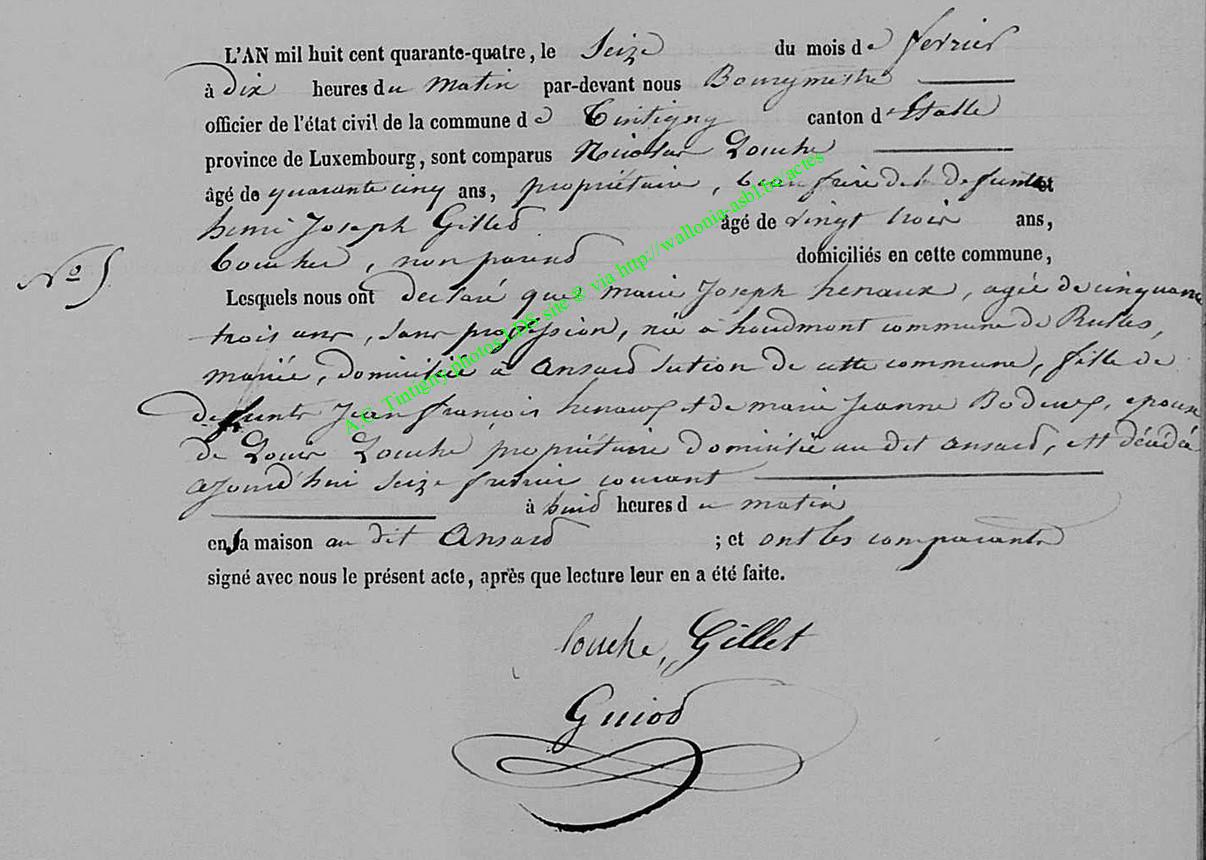 L'AN mil huit cent quarante-quatre, le Seize du mois de fevrier
à Dix heures du Matin par-devant nous Bourgmestre
officier de l'état civil de la commune de Tintigny canton d'Etalle
province de Luxembourg, sont comparus Nicolas Louche
âgé de quarante cinq ans, propriétaire, beau frère de la defunte et
henri Joseph Gillet âgé de vingt trois ans,
boucher, non parent domiciliés en cette commune,
N° 5.
Lesquels nous ont declaré que marie Joseph henaux, agée de cinquante
trois ans, sans profession, née à houdmont commune de Rulles,
mariée, domiciliée à Ansard section de cette commune, fille de
defunts Jean francois henaux et de marie Jeanne epoux
de Louis Louche propriétaire domicilié au dit ansard, est décédé
ajourd'hui seize fevrier courant
à huit heures du matin
en sa maison au dit Ansard ; et ont les comparants
signé avec nous le présent acte, après que lecture leur en a été faite.
Louche, Gillet
Guiot
A.C. Tintigny photos LDS site @ via http://wallonia-asbl.be/actes